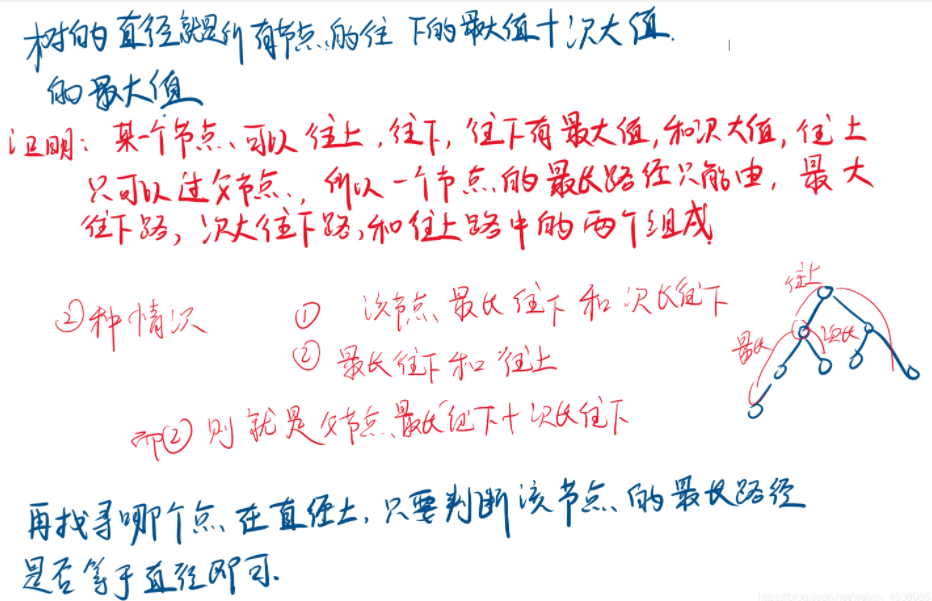 树的直径就是所有节点的往下的最大值+次大值.
的最大值
证明：某一个节点、可以往上，往下，往下有最大值，和次大值，往上
只可以过父节点，所以一个节点的最长路径只能由，最大
往下路，次大往下路，和往上路中的两个组成
②种情况 ① 该节点最长往下和次长往下
② 最长往下和往上
而② 则就是父节点最长往下+次长往下
往上
最长 次长
再找寻哪个点、在直径上，只要判断该节点、的最长路径
是否等于直径即可.